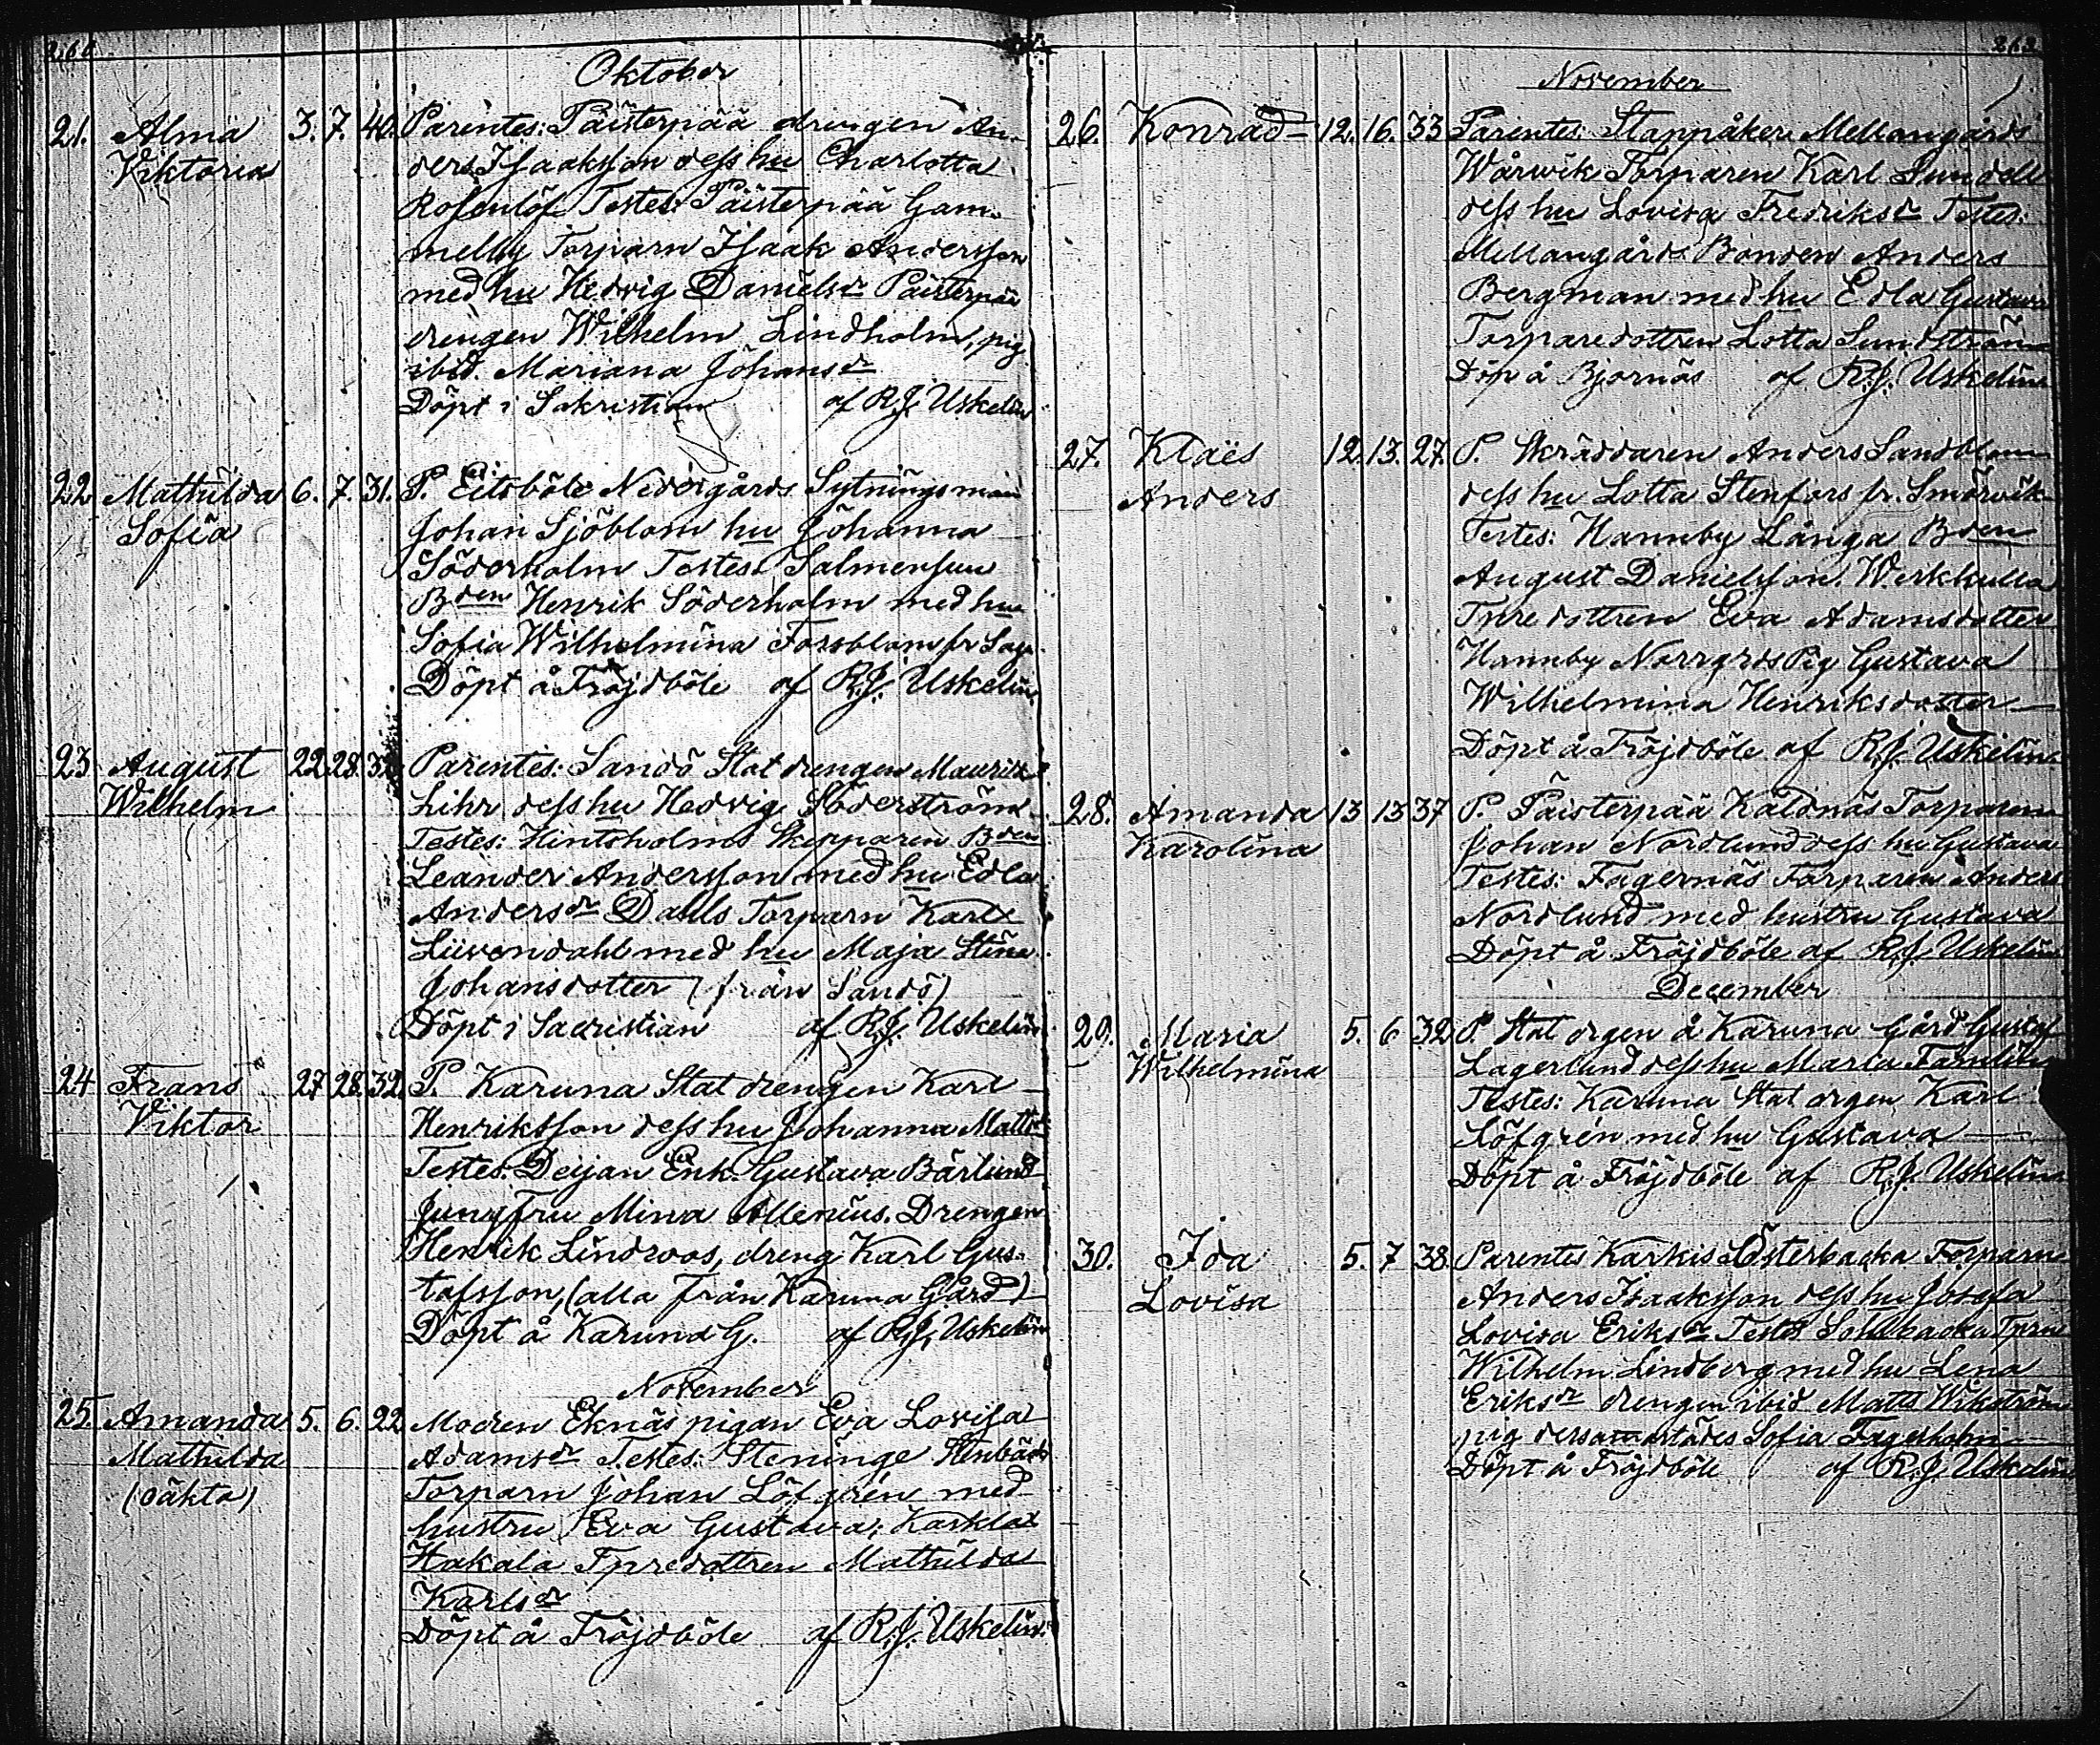 Oktober
21. Alma 3. 7. 40. Parentes: Päisterpää drengen An-
Viktoria ders Isaaksson dess hu Charlotta
Rosenlöf Testes: Päisterpää Gam-
melby Torparn Isaak Andersson
med hu Hedvig Daniels dr Päisterpää
drengen Wilhelm Lindholm, pig.
ibid. Mariana Johans dr
Döpt i Sakristian af R.J. Uskelin
22 Mathilda 6. 7. 31. P. Eitsböle Nedergårds Sytningsman
Sofia Johan Sjöblom hu Johanna
Söderholm Testes: Salmensuu
Bden Henrik Söderholm med hu
Sofia Wilhelmina Forsblom fr
Döpt å Fröjdböle af R.J. Uskelin
23 August 22 28. August
Wilhelm Parentes: Sandö Stat drengen Maurits
Lihr dess hu Hedvig Söderström
Testes: Hintsholms Skepparen Bden
Leander Andersson med hu Edla
Anders dr Dahls Torparn Karl
Liivendahl med hu Maja Stina
Johansdotter (från Sandö)
Döpt i Sacristian af R.J. Uskelin
24 Frans 27 28. 32. P. Karuna Stat drengen Karl
Viktor Henriksson dess hu Johanna Matts
Testes. Dejan Enk. Gustava Bärlund
Jungfru Mina Allenius. Drengen
Henrik Lindroos, dreng Karl Gus-
tafsson, (alla från Karuna Gård)
Döpt å Karuna G. af R.J. Uskelin
November
25. Amanda 5. 6. 22 Modren Eknäs pigan Eva Lovisa
Mathilda Adams dr Testes: Steninge Stenbäck
(oäkta) Torparn Johan Löfgrén med
hustru Eva Gustava; Karkla
Hakala Tpredottren Mathilda
Karls dr
Döpt å Fröjdböle af R.J. Uskelin.
November
26. Konrad – 12. 16. 33 Parentes: Stappåker Mellangårds
Wårwik Torparen Karl Sundell
dess hu Lovisa Fredriks dr Testes:
Mellangårds Bonden Anders
Bergman med hu Edla Gustava
Torparedottren Lotta Sundström
Döp å Bjornäs af R.J. Uskelin
27. Klaës 12. 13. 27. P. Skräddaren Anders Sandblom
Anders dess hu Lotta Stenfors fr. Smörvik
Testes: Hannby Långa Bden
August Danielsson. Werkkulla
Tpredottren Eva Adamsdotter
Hannby Norrgrds Pig Gustava
Wilhelmina Henriksdotter –
Döpt å Fröjdböle af R.J. Uskelin.
28. Amanda 13 13 37 P. Päisterpää Kaldnäs Torparen
Karolina Johan Nordlund dess hu Gustava
Testes: Fagernäs Torparen Anders
Nordlund med hustru Gustava
Döpt å Fröjdböle af R.J. Uskelin
December
29. Maria 5. 6 32 P. Stat drgen å Karuna Gård Gustaf
Wilhelmina Lagerlund dess hu Maria
Testes: Karuna Stat drgen Karl
Löfgrén med hu Gustava –
Döpt å Fröjdböle af R.J. Uskelin
30. Ida 5. 7 38. Parentes Karkis Österbacka Torparn
Lovisa Anders Isaaksson dess hu Josefa
Lovisa Eriks dr Testes Tprn
Wilhelm Lindberg med hu Lena
Eriks dr drengen ibid Matts Wikström
pig dersammastädes Sofia Fagerholm
Döpt å Fröjdböle af R.J. Uskelin